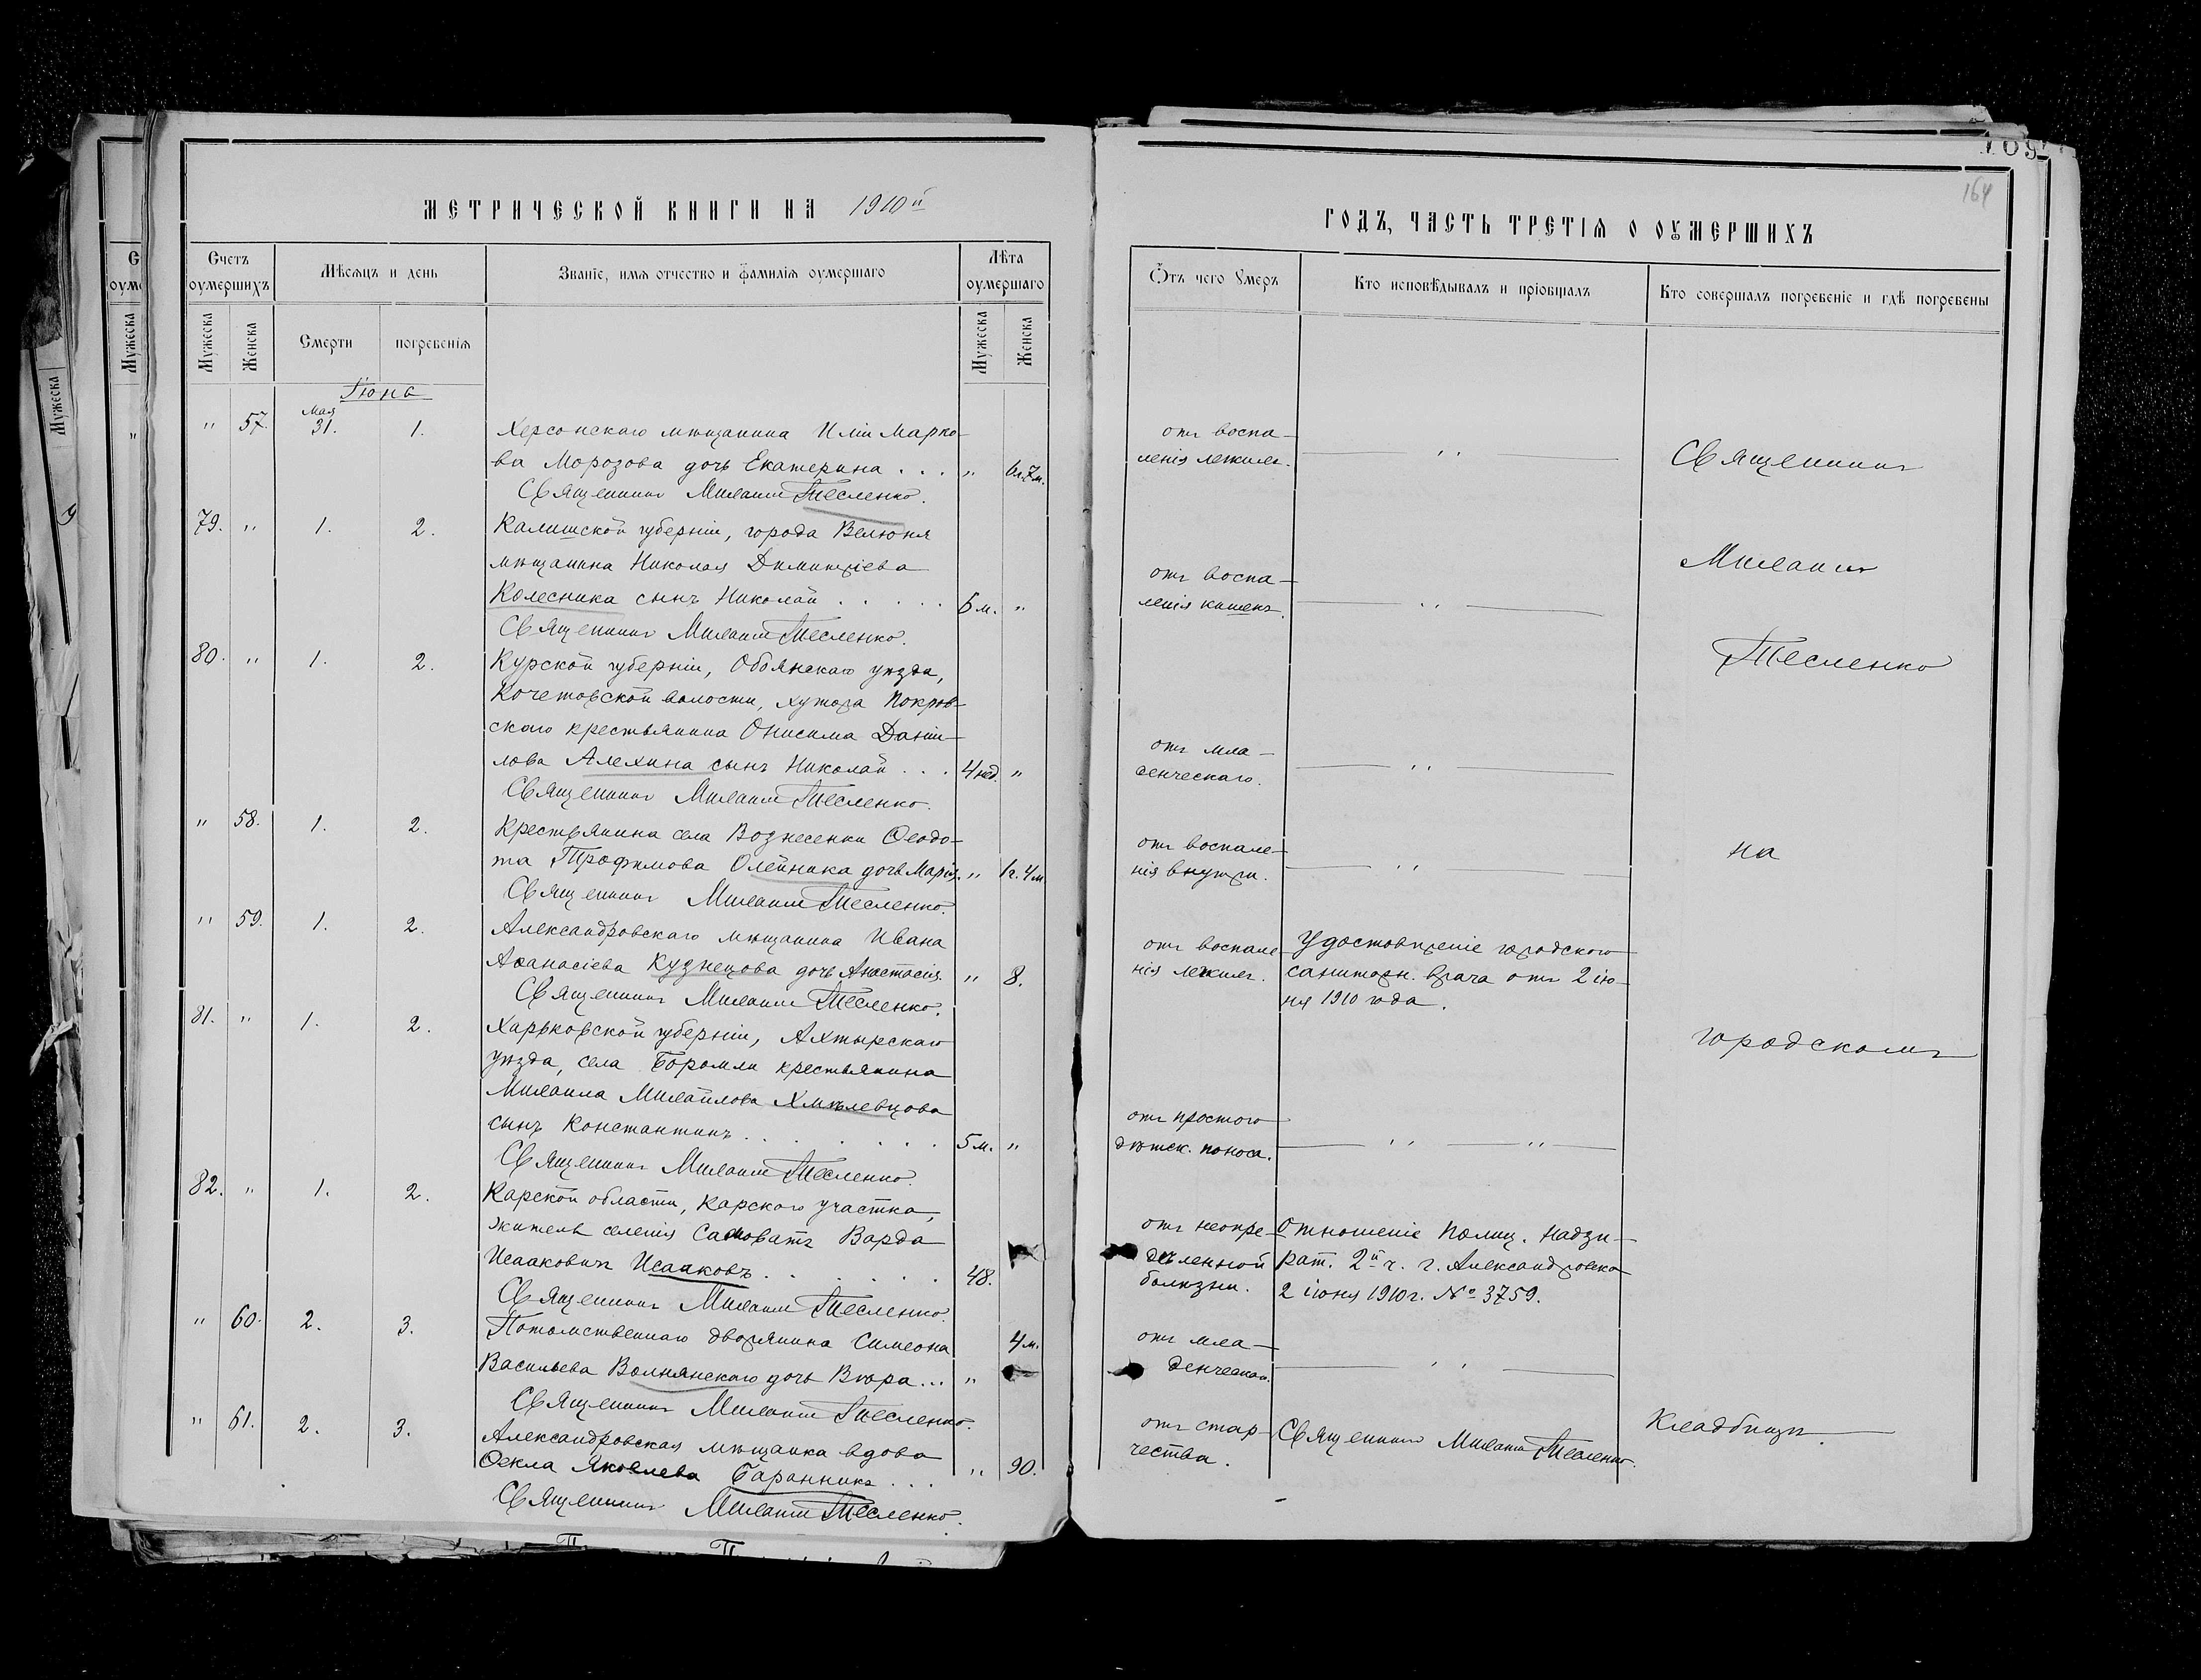 МЕТРИЧЕСКОЙ КНИГИ НА 1910й
Счетъ оумершихъ
Мѣсяцъ и день
Званіе, имя отчество и фамилія оумершаго
Лѣта оумершаго
Мужеска
Женска
Смерти
погребенія
Мужеска
Женска
Іюнь
" 57. Мая 31. 1. Херсонскаго мѣщанина Иліи Марко-
ва Морозова дочь Екатерина . . . " 6л.7м.
Священникъ Михаилъ Тесленко.
79. " 1. 2. Калишской губерніи, города Велюня
мѣщанина Николая Димитріева
Колесника сынъ Николай . . . . . 6 м. "
Священникъ Михаилъ Тесленко.
80. " 1. 2. Курской губерніи, Обоянскаго уѣзда,
Кочетовской волости, хутора Покров-
скаго крестьянина Онисима Дані-
лова Алехина сынъ Николай . . . 4 нед. "
Священникъ Михаилъ Тесленко.
" 58. 1. 2. Крестьянина села Вознесенки Ѳеодо-
та Трофимова Олейника дочь Марія. " 1г.4м.
Священникъ Михаилъ Тесленко.
" 59. 1. 2. Александровскаго мѣщанина Ивана
Аѳанасіева Кузнецова дочь Анастасія. " 8.
Священникъ Михаилъ Тесленко.
81. " 1. 2. Харьковской губерніи, Ахтырскаго
уѣзда, села Боромли крестьянина
Михаила Михайлова Хмѣлевцова
сынъ Константинъ . . . . . . . 5 м. "
Священникъ Михаилъ Тесленко.
82. " 1. 2. Карской области, Карскаго участка,
житель селенія Варда
Исааковичъ Исааковъ . . . . . . 48.
Священникъ Михаилъ Тесленко.
" 60. 2. 3. Потомственнаго дворянина Симеона 4 м.
Васильева Волнянскаго дочь Вѣра... "
Священникъ Михаилъ Тесленко.
" 61. 2. 3. Александровская мѣщанка вдова
Ѳекла Яковлева Баранникъ . . . " 90.
Священникъ Михаилъ Тесленко.
164
ГОДЪ, ЧАСТЬ ТРЕТІЯ О ОУМЕРШИХЪ
Отъ чего умеръ
Кто исповѣдывалъ и пріобщалъ
Кто совершалъ погребеніе и гдѣ погребены
отъ воспа-
ленія легкихъ. "
Священникъ
Михаилъ
отъ воспа-
ленія кишекъ. "
Тесленко
отъ мла-
денческаго. "
отъ воспале-
нія внутри. "
на
отъ воспале-
нія легкихъ.
Удостовѣреніе городского
санитарн. врача отъ 2 ію-
ня 1910 года.
городскомъ
отъ простого
дѣтск. поноса. " "
отъ неопре-
дѣленной
болѣзни.
Отношеніе Полиц. Надзи-
рат. 2й ч. г. Александровска
2 іюня 1910г. № 3759.
отъ мла-
денческаго. "
отъ стар-
чества.
Священникъ Михаилъ Тесленко.
кладбищѣ.